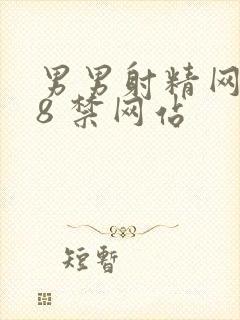 男男射精网
8禁网站
短暫